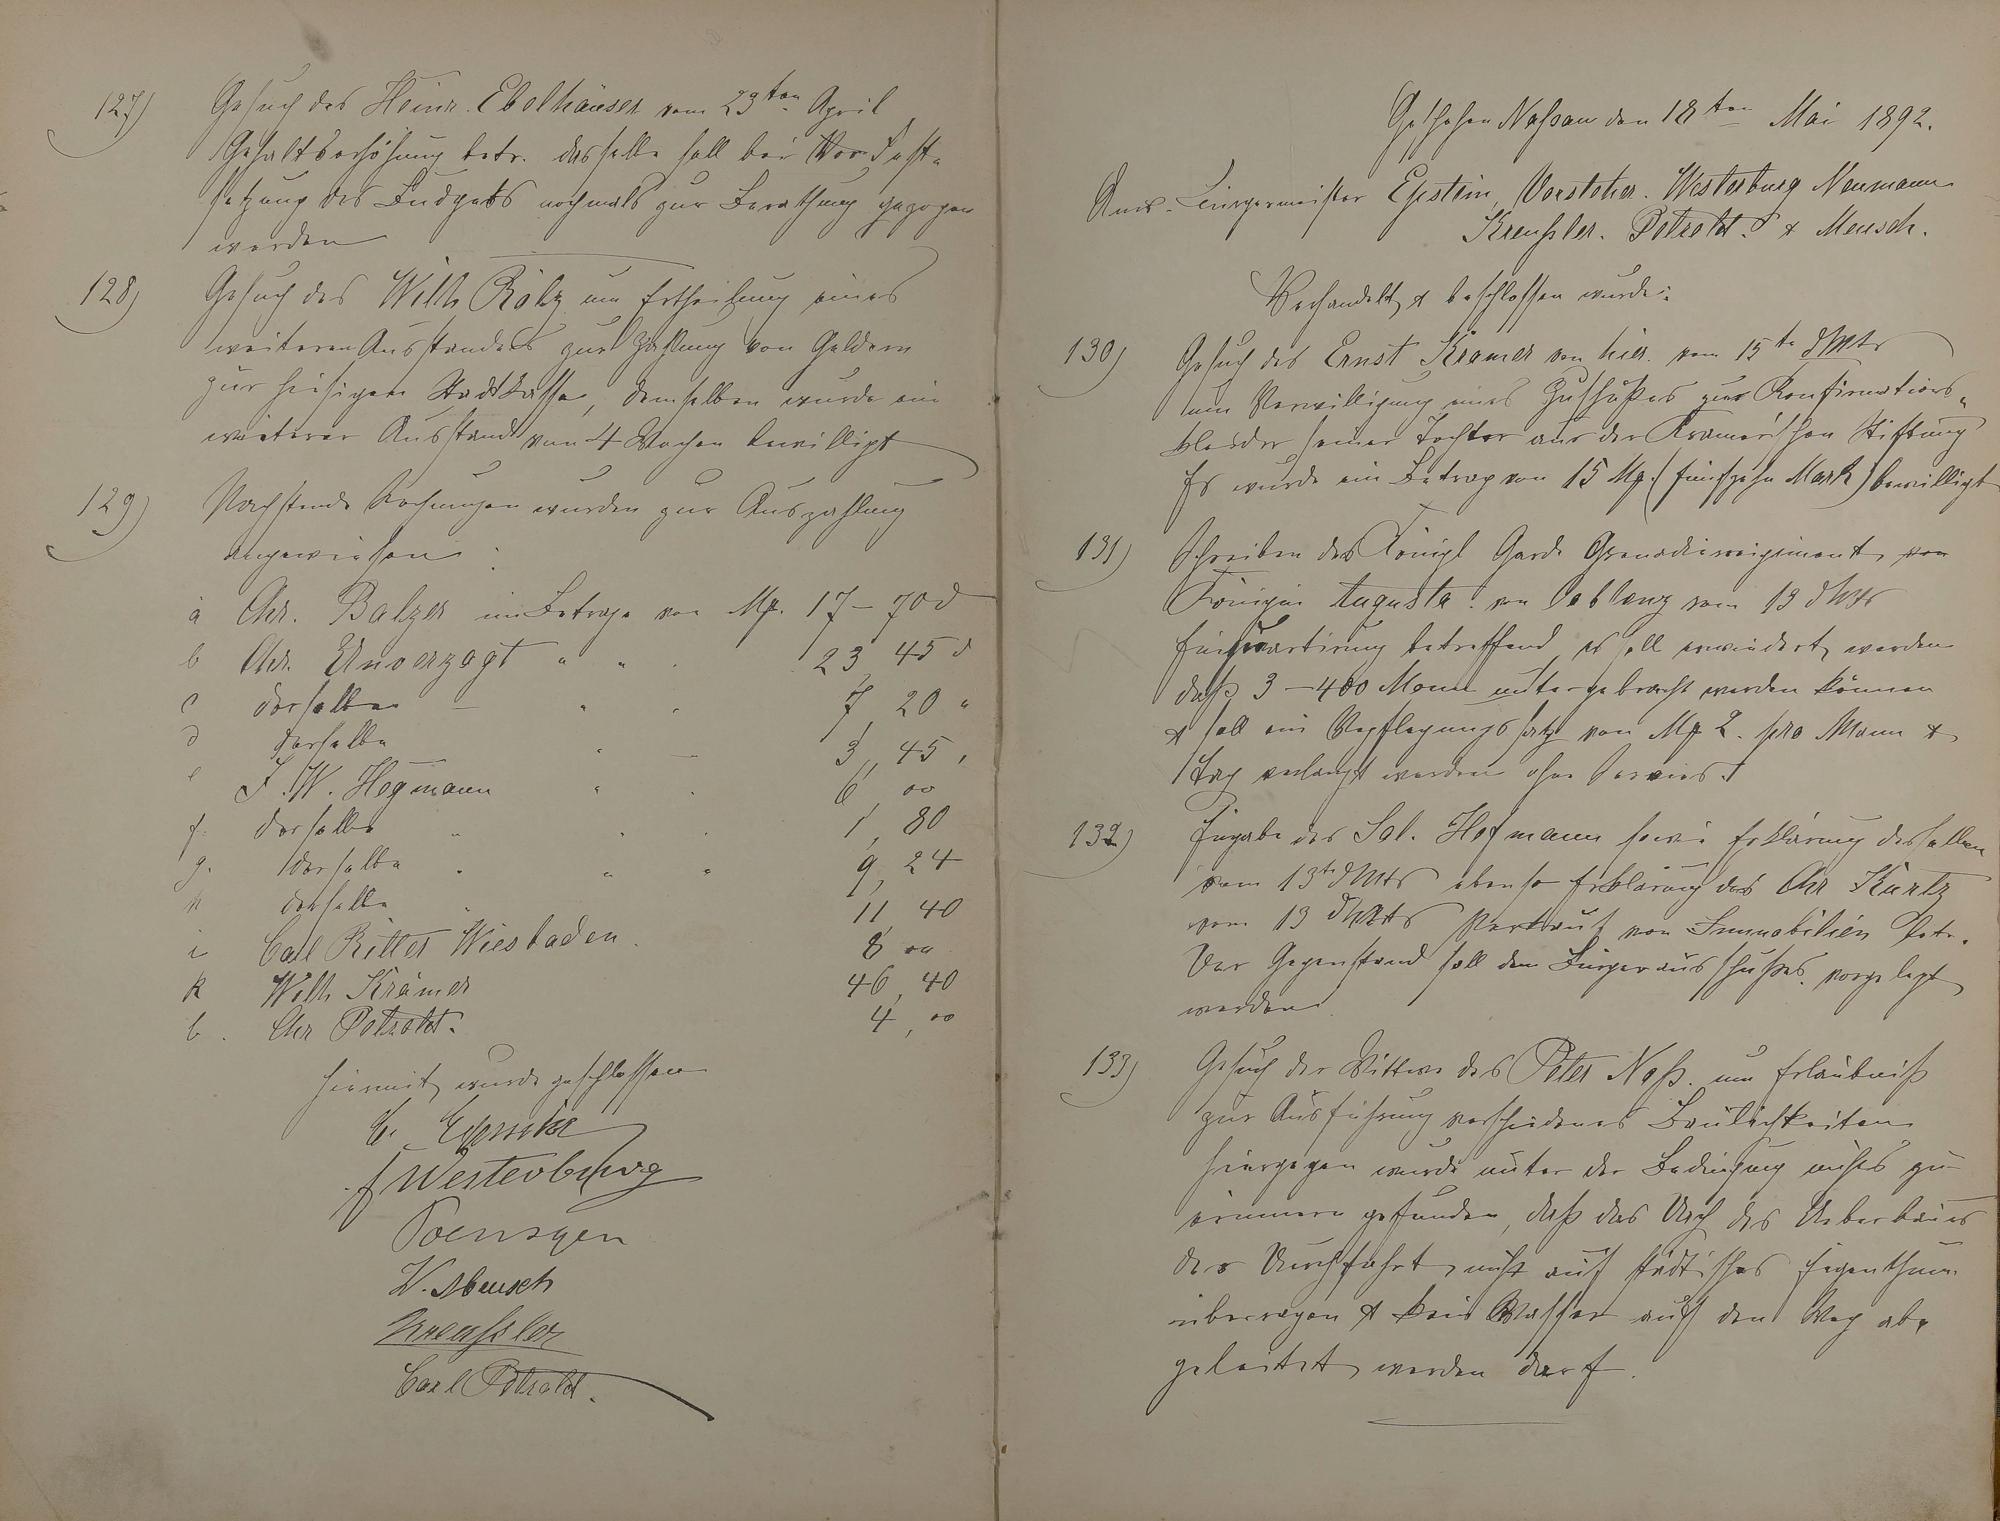 127) Gesuch des Heinr. Ebelhäuser vom 23ten April
Gehaltserhöhung betr. dasselbe soll bei Fest-
setzung des Budgets nochmals zur Berathung gezogen
werden
128) Gesuch des Wilh. Rölz um Ertheilung eines
weiteren Ausstandes zur Zahlung von Geldern
zur hiesigen Stadtkasse, demselben wurde ein
weiterer Ausstand von 4 Wochen bewilligt
129) Nachstende Rechnungen wurden zur Auszahlung
angewiesen:
a Chr. Balzer im Betrage von Mk. 17 – 70 d
b Chr. Unverzagt " " 23 45 d
c derselbe – " 7 20 "
d derselbe " – 3, 45,
e J. W. Hegmann " 6, 00
f. derselbe " 1, 80
g. derselbe " " " 9, 24
h derselbe 11 40
i Carl Ritter Wiesbaden. 8 00
k Wilh Krämer 46, 40
l. Chr Petroldt. 4, 00
hiermit wurde geschlossen
Westerburg
Poensgen
W. Mensch
Kreußler
Carl Petroldt.
Geschehen Naßau den 18ten Mai 1892.
Anw. Bürgermeister Epstein, Vorsteher. Westerburg Neumann
Kreußler. Petroldt. & Mensch.
Verhandelt & beschlossen wurde:
130) Gesuch des Ernst Kramer von hier. vom 15te dMts
um Verwilligung eines Zuschußes zur Konfirmations-
kleider seiner Tochter aus der Kramer'schen Stiftung
Es wurde ein Betrag von 15 Mk. (fünfzehn Mark) bewilligt
131) Schreiben des Königl Garde Grenadierregiment von
Königin Augusta. von Coblenz vom 13 dMts
Einquartirung betreffend es soll erwiedert werden
daß 3 – 400 Mann untergebracht werden können
& soll ein Verpflegungssatz von Mk 2. pro Mann &
Tag verlangt werden ohne Servies.
132) Eingabe des Sal. Hofmann sowie Erklärung desselben
vom 13te dMts ebenso Erklärung des Chr Kurtz
vom 13 dMts Verkauf von Immobilien betr.
Der Gegenstand soll dem Bürgerausschußes. vorgelegt
werden.
133) Gesuch der Wittwe des Peter Naß. um Erlaubniß
zur Ausführung verschiedenes Baulichkeiten
hiergegen wurde unter der Bedingung nichts zu
erinnern gefunden, daß das Dach des Ueberbaues
der Durchfahrt nicht auf städtisches Eigenthum
überragen & kein Wasser auf den Weg ab-
geleitet werden darf.